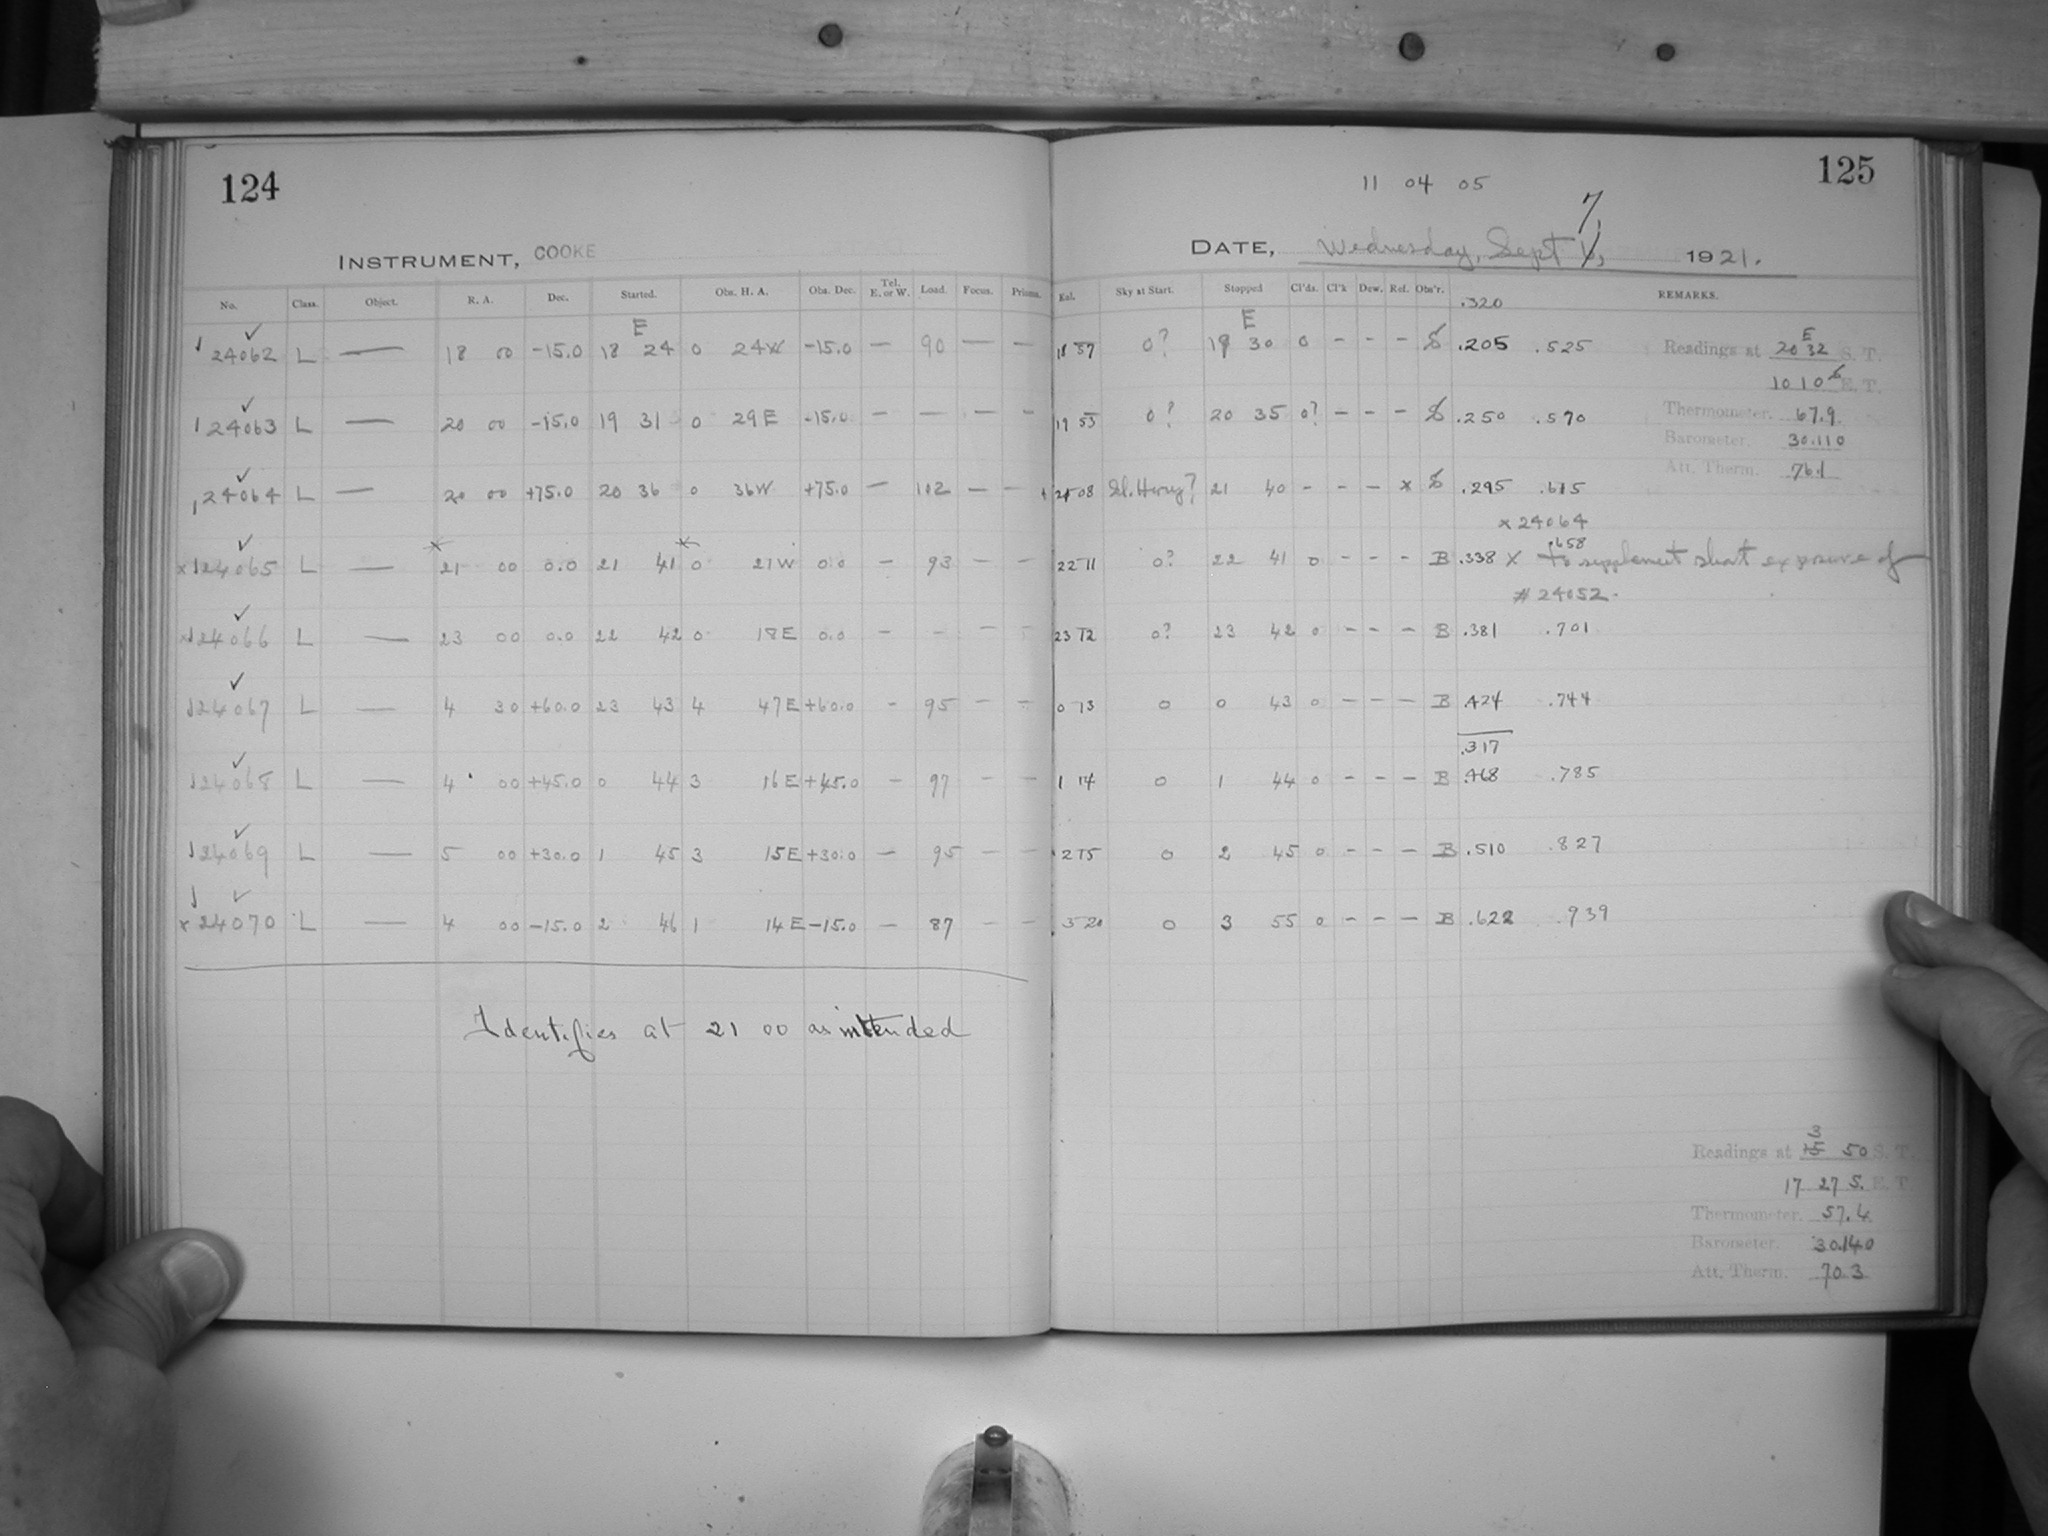 124
INSTRUMENT, COOKE
No. Class. Object. R. A. Dec. Started. Obs. H. A. Obs. Dec. Tel. E. or W. Load. Focus. Prisms.
E
24062 L — 18 00 -15.0 18 24 0 24W -15.0 — 90 — —
24063 L — 20 00 -15.0 19 31 0 29E -15.0 — — — —
24064 L — 20 00 +75.0 20 36 0 36W +75.0 — 102 — —
x 24065 L — 21 00 0.0 21 41 0 21W 0.0 — 93 — —
x 24066 L — 23 00 0.0 22 42 0 18E 0.0 — - — —
24067 L — 4 30 +60.0 23 43 4 47E +60.0 - 95 — —
24068 L — 4 00 +45.0 0 44 3 16E +45.0 - 97 — —
24069 L — 5 00 +30.0 1 45 3 15E +30.0 — 95 — —
x 24070 L — 4 00 -15.0 2 46 1 14E -15.0 — 87 — —
Identifies at 21 00 as intended
125
11 04 05
7,
DATE, Wednesday, Sept 1921.
Sky at Start. Stopped Cl'ds. Cl'k Dew. Ref. Obs'r. REMARKS.
.320
E
18 57 0? 19 30 0 - - - S .205 .525
19 53 0? 20 35 0? - - - S .250 .570
21 08 Sl. Hazy? 21 40 - - - x S .295 .615
x 24064
.658
22 11 0? 22 41 0 - - - B .338 x to supplement short exposure of
# 24052.
23 12 0? 23 42 0 - - - B .381 .701
0 13 0 0 43 0 - - - B .424 .744
.317
1 14 0 1 44 0 - - - B .468 .785
2 15 0 2 45 0 - - - B .510 .827
3 20 0 3 55 0 - - - B .622 .939
E
Readings at 20 32 S. T.
10 10 E. T.
Thermometer. 67.9
Barometer. 30.110
Att. Therm. 76.1
3
Readings at 15 50 S. T.
17 27 S. E. T.
Thermometer. 57.4
Barometer. 30.140
Att. Therm. 70.3